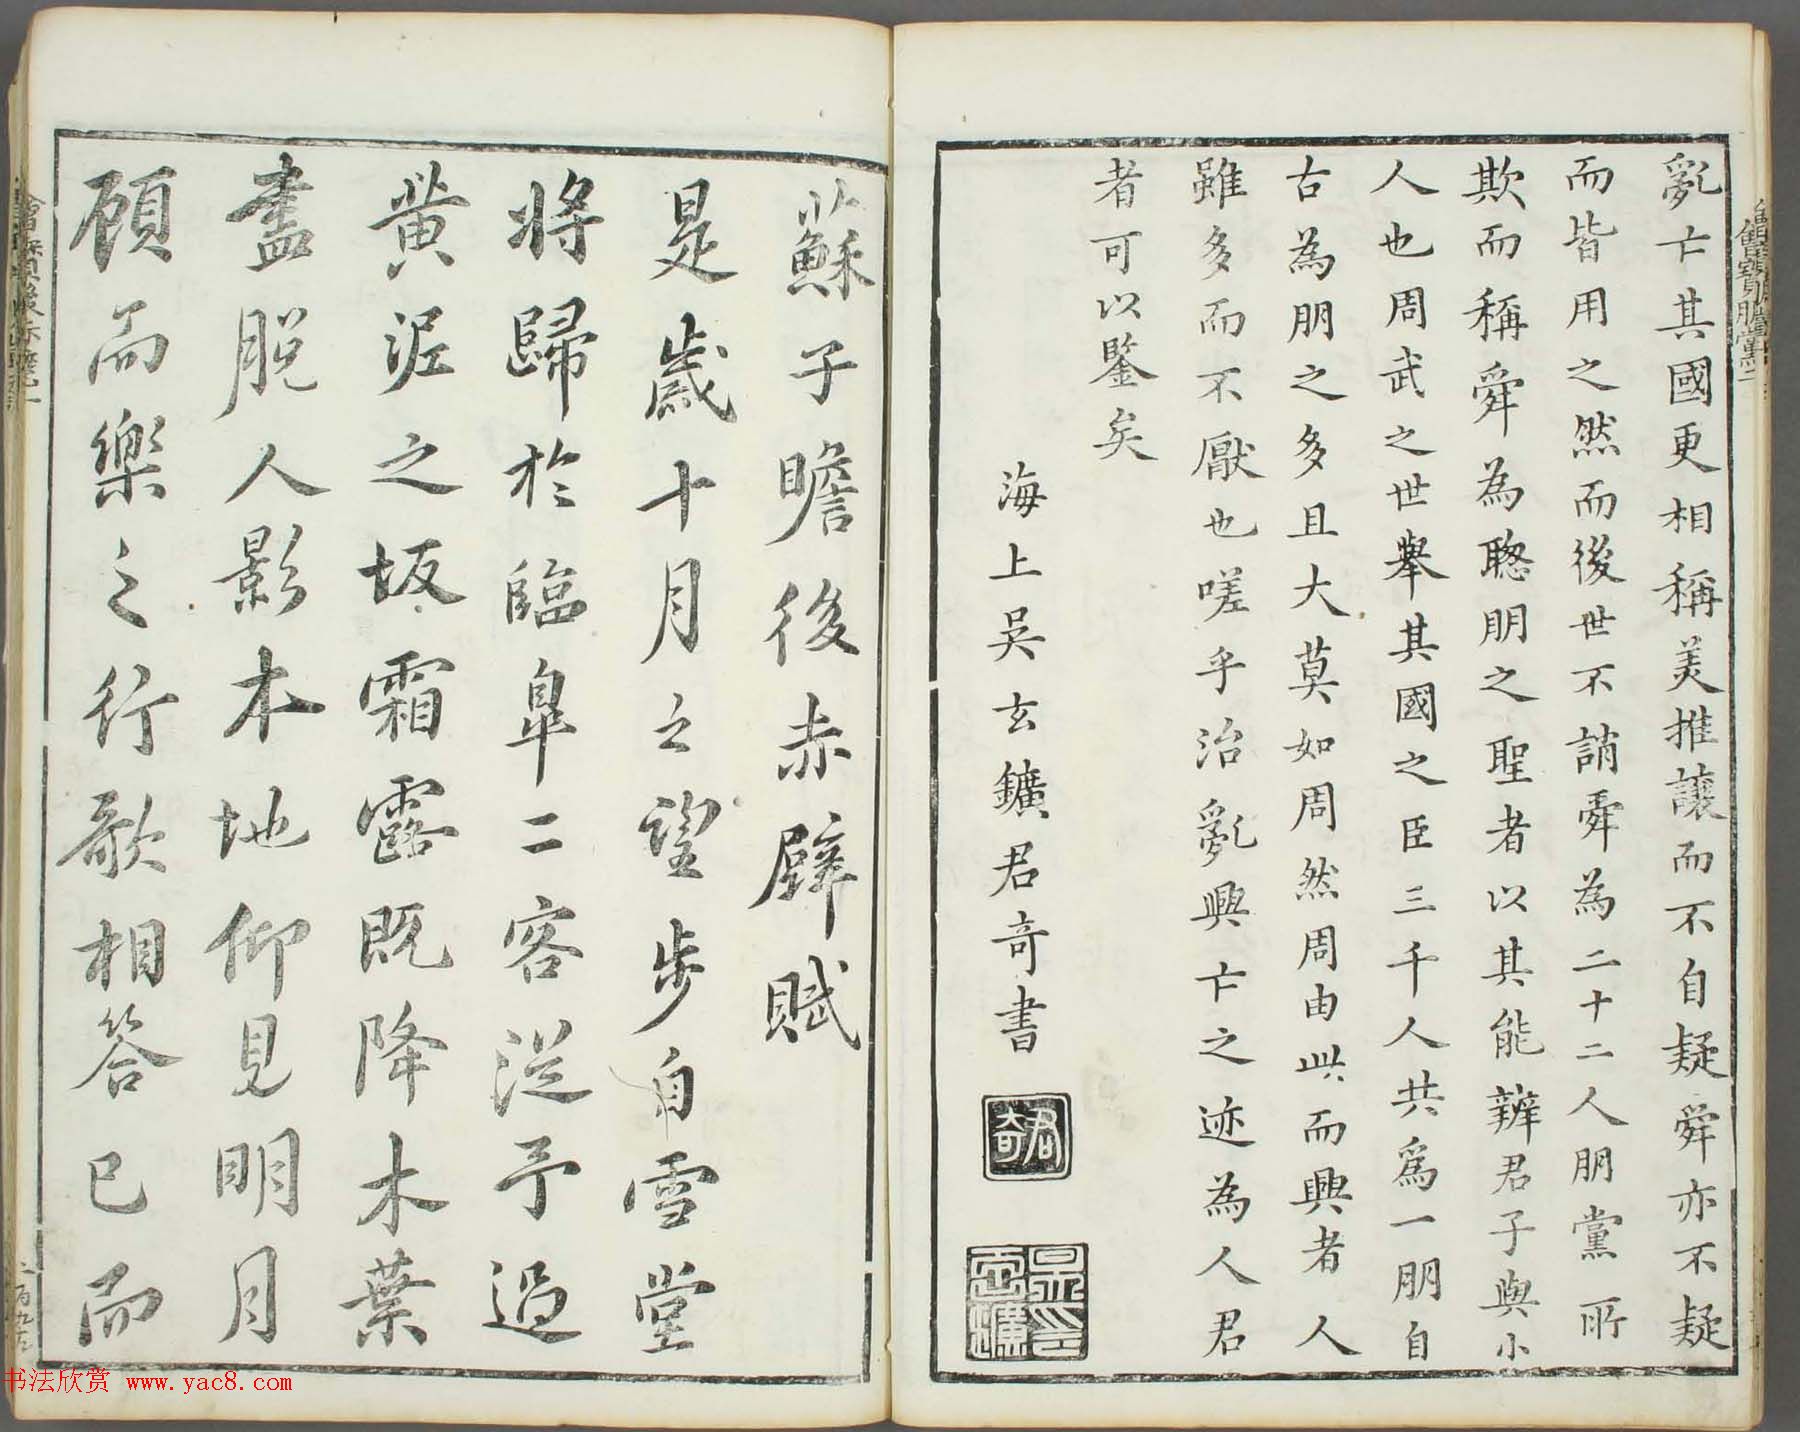 亂亡其國更相稱美推讓而不自疑舜亦不疑
而皆用之然而後世不誚舜為二十二人朋黨所
欺而稱舜為聰明之聖者以其能辨君子與小
人也周武之世舉其國之臣三千人共為一朋自
古為朋之多且大莫如周然周由此而興者人
雖多而不厭也嗟乎治亂興亡之迹為人君
者可以鑒矣
海上吳玄鑛君奇書
君奇
蘇子瞻後赤壁賦
是歲十月之望步自雪堂
將歸於臨皐二客從予過
黃泥之坂霜露既降木葉
盡脫人影木地仰見明月
顧而樂之行歌相答已而
书法欣赏 www.yac8.com